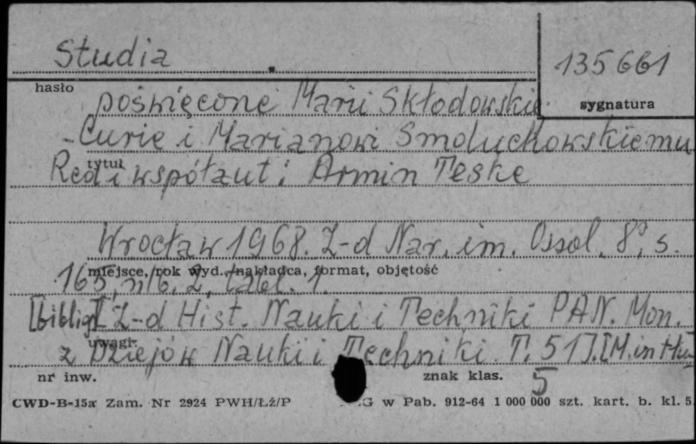 Studia
135661
hasło
sygnatura
poświęcone Marii Skłodowskiej
-Curie i Marianowi Smoluchowskiemu
tytuł
Red. i współaut.: Armin Teske
Wrocław 1968. Z-d Nar. im. Ossol. 8°, s.
miejsce, rok wyd., nakładca, format, objętość
165, nlb. 2, tabl. 1.
[bibliogr.] [Z-d Hist. Nauki i Techniki PAN. Mon.
uwagi:
z Dziejów Nauki i Techniki T. 51]. [M. in
nr inw.
znak klas. 5
CWD-B-15a Zam. Nr 2924 PWH/Łż/P G w Pab. 912-64 1 000 000 szt. kart. b. kl. 5